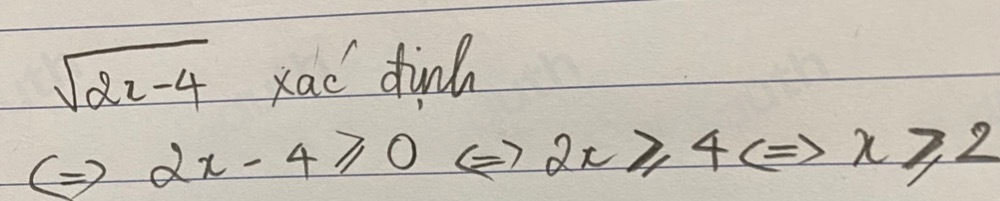 √2x-4 xác định
⇔ 2x - 4 ⩾ 0 ⇔ 2x ⩾ 4 ⇔ x ⩾ 2